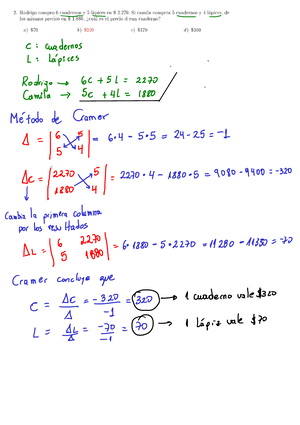 2. Rodrigo compra 6 cuadernos y 5 lápices en $ 2.270. Si camila compra 5 cuadernos y 4 lápices, de
los mismos precios en $ 1.880, ¿cuál es el precio d cuaderno?
a) $70 b) $320 c) $370 d) $390
C : cuadernos
L : lápices
Rodrigo → 6C + 5L = 2270
Camila → 5C + 4L = 1880
Método de Cramer
Δ = | 6 5 | = 6·4 - 5·5 = 24 - 25 = -1
5 4
ΔC = | 2270 5 | = 2270·4 - 1880·5 = 9080 - 9400 = -320
1880 4
Cambia la primera columna
por los resultados
ΔL = | 6 2270 | = 6·1880 - 5·2270 = 11280 - 11350 = -70
5 1880
Cramer concluye que
C = ΔC/Δ = -320/-1 = 320 → 1 cuaderno vale $320
L = ΔL/Δ = -70/-1 = 70 → 1 lápiz vale $70